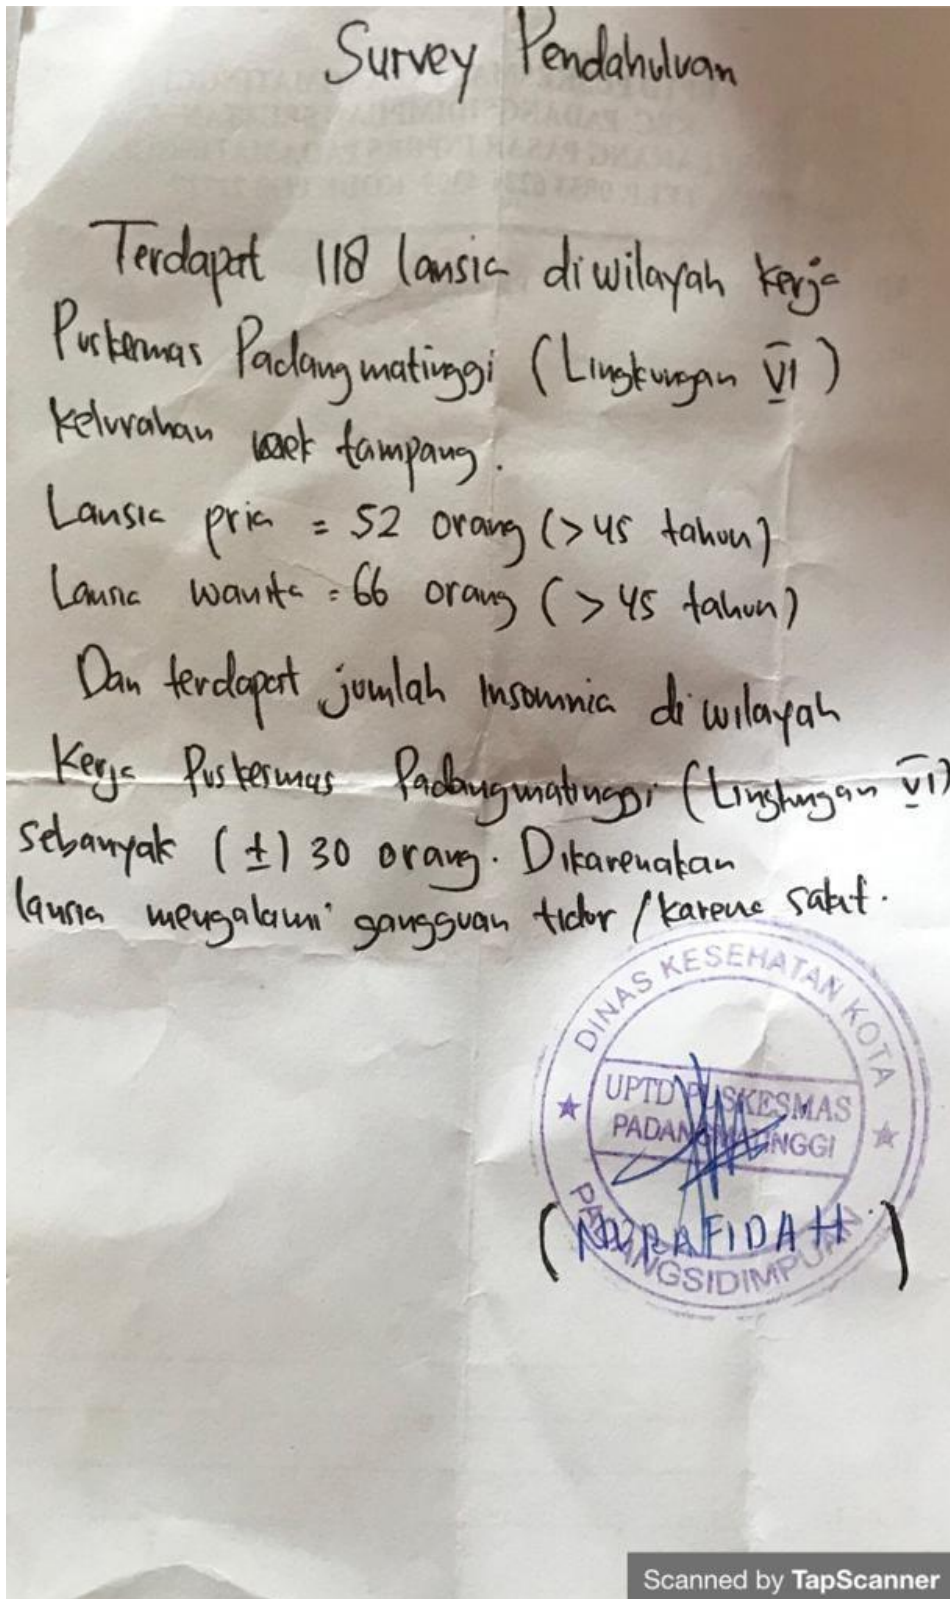 Survey Pendahuluan
Terdapat 118 lansia diwilayah kerja
Puskesmas Padangmatinggi (Lingkungan VI)
Kelurahan wek tampang.
Lansia pria = 52 orang (>45 tahun)
Lansia wanita = 66 orang (>45 tahun)
Dan terdapat jumlah Insomnia di wilayah
Kerja Puskesmas Padangmatinggi (Lingkungan VI)
sebanyak (±) 30 orang. Dikarenakan
lansia mengalami gangguan tidur / karena sakit.
DINAS KESEHATAN KOTA
UPTD PUSKESMAS
PADANGMATINGGI
PADANGSIDIMPUAN
(NURAFIDAH)
Scanned by TapScanner